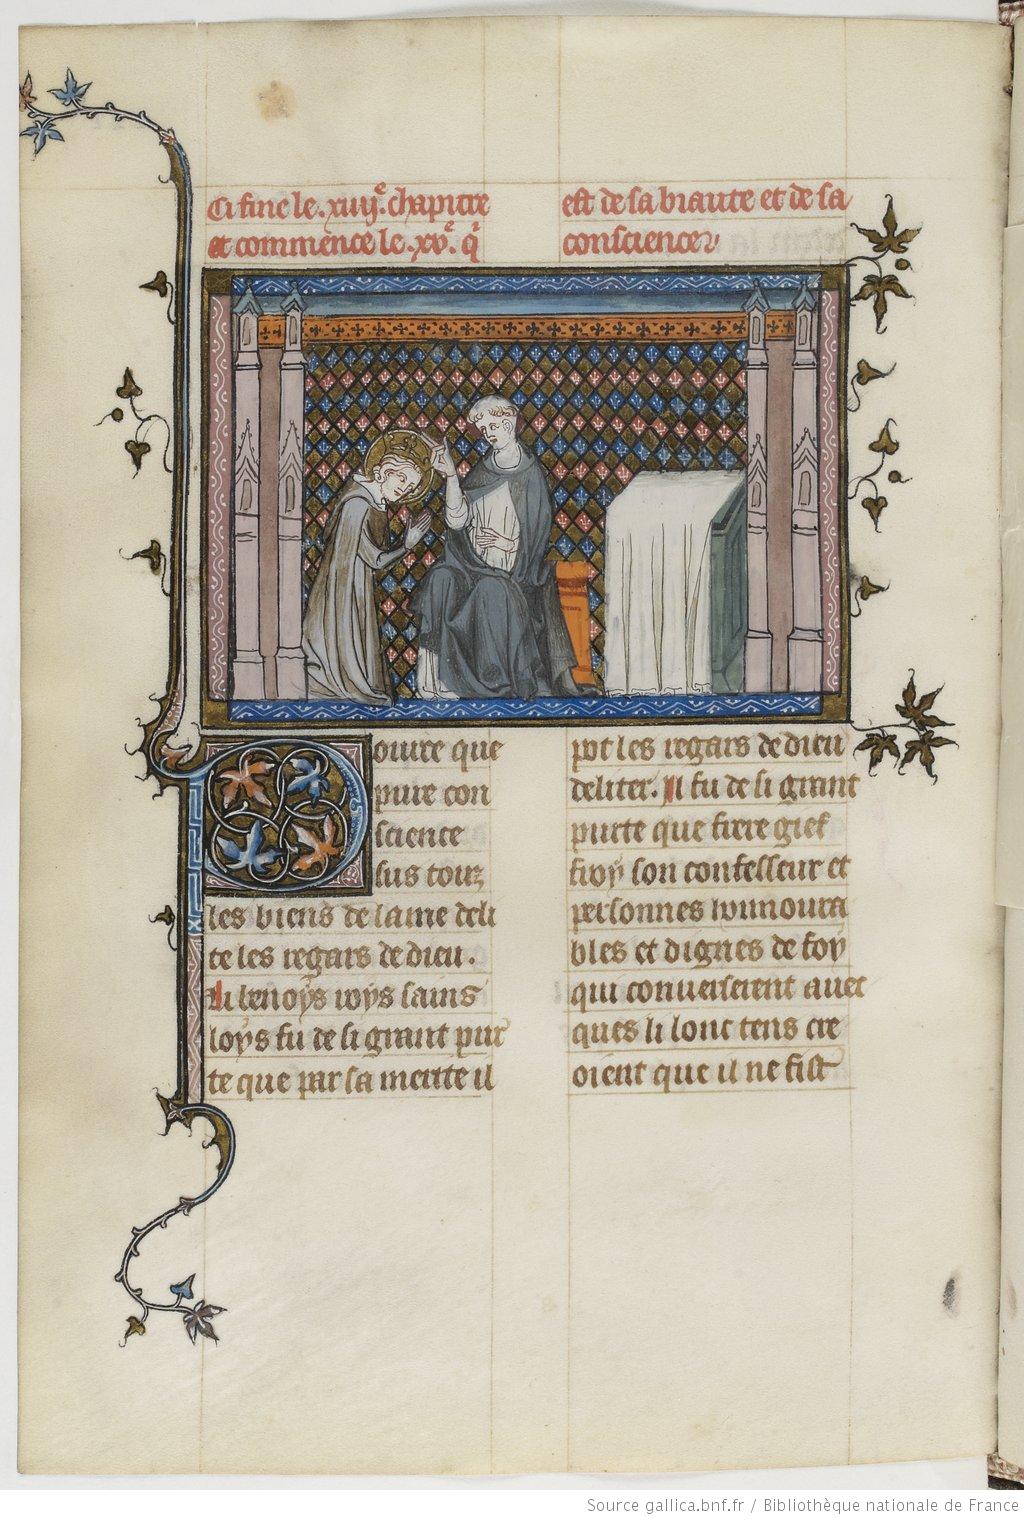 Ci fine le .xiiij.e chapitre
et commence le .xv.e qi
est de sa biaute et de sa
conscience
Pource que
pure con
science
sus touz
les biens de lame deli
te les regars de dieu.
Li benoys roys sains
loys fu de si grant pur
te que par sa merite il
pot les regars de dieu
deliter. Il fu de si grant
purte que frere gief
froy son confesseur et
personnes honnoura
bles et dignes de foy
qui converserent avec
ques li lonc tens cre
oient que il ne fist
Source gallica.bnf.fr / Bibliothèque nationale de France